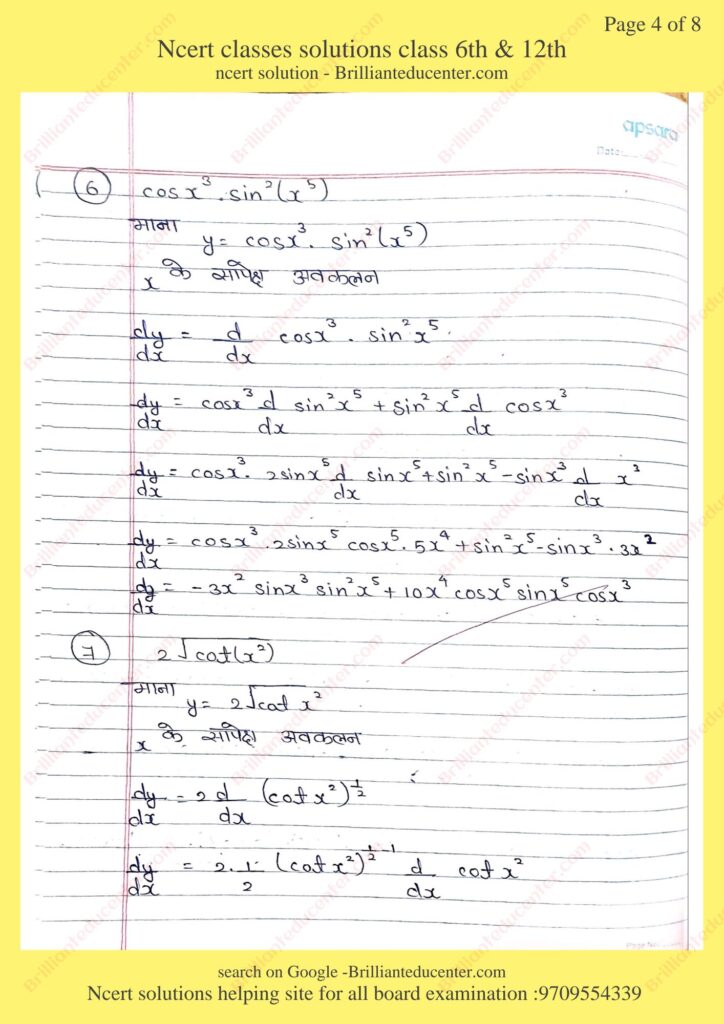 Page 4 of 8
Ncert classes solutions class 6th & 12th
ncert solution - Brillianteducenter.com
apsara
Date
6 cos x³ . sin²(x⁵)
माना y = cos x³ . sin²(x⁵)
x के सापेक्ष अवकलन
dy/dx = d/dx cos x³ . sin² x⁵
dy/dx = cos x³ d/dx sin² x⁵ + sin² x⁵ d/dx cos x³
dy/dx = cos x³ . 2 sin x⁵ d/dx sin x⁵ + sin² x⁵ - sin x³ d/dx x³
dy/dx = cos x³ . 2 sin x⁵ cos x⁵ . 5x⁴ + sin² x⁵ - sin x³ . 3x²
dy/dx = -3x² sin x³ sin² x⁵ + 10x⁴ cos x⁵ sin x⁵ cos x³
7 2√cot(x²)
माना y = 2√cot x²
x के सापेक्ष अवकलन
dy/dx = 2 d/dx (cot x²)^1/2
dy/dx = 2 . 1/2 (cot x²)^1/2 - 1 d/dx cot x²
Page No.
search on Google -Brillianteducenter.com
Ncert solutions helping site for all board examination :9709554339
Brillianteducenter.com